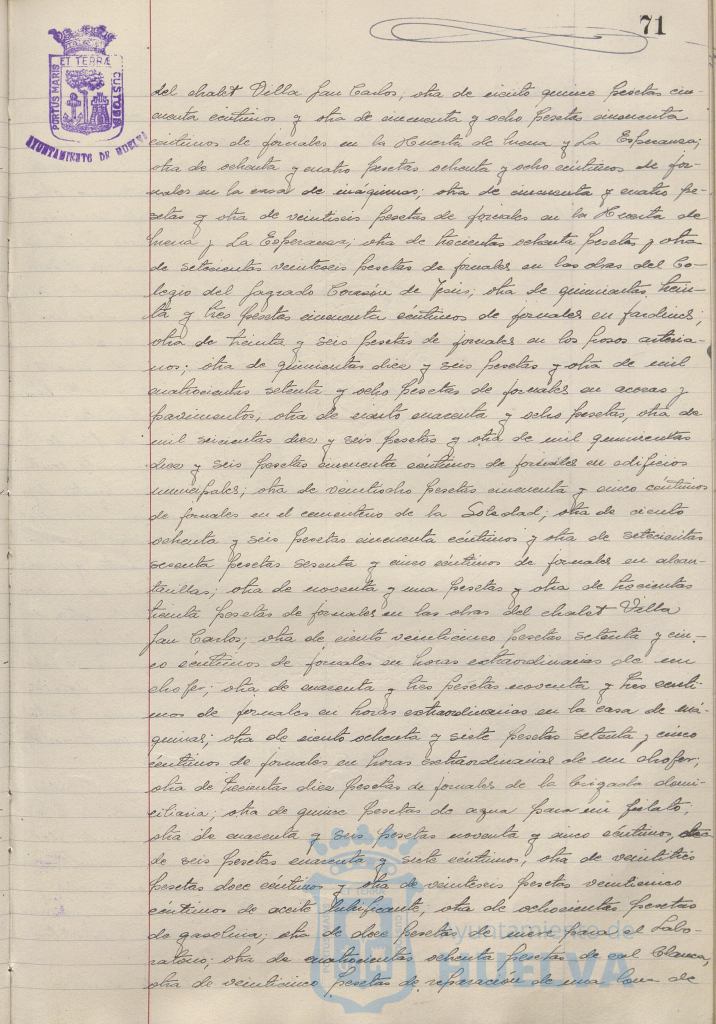 71
PORTUS MARIS ET TERRÆ CUSTODIA
AYUNTAMIENTO DE HUELVA
del chalet Villa San Carlos; otra de ciento quince pesetas cin-
cuenta céntimos y otra de cincuenta y ocho pesetas cincuenta
céntimos de jornales en la Huerta de Mena y La Esperanza;
otra de ochenta y cuatro pesetas ochenta y ocho céntimos de jor-
nales en la casa de máquinas; otra de cincuenta y cuatro pe-
setas y otra de veintiseis pesetas de jornales en la Huerta de
Mena y La Esperanza; otra de trecientas ochenta pesetas y otra
de setecientas veinteseis pesetas de jornales en las obras del Co-
legio del Sagrado Corazón de Jesús; otra de quinientas trein-
ta y tres pesetas cincuenta céntimos de jornales en jardines;
otra de treinta y seis pesetas de jornales en los pozos artesia-
nos; otra de quinientas diez y seis pesetas y otra de mil
cuatrocientas setenta y ocho pesetas de jornales en aceras y
pavimentos, otra de ciento cuarenta y ocho pesetas, otra de
mil seiscientas diez y seis pesetas y otra de mil quinientas
diez y seis pesetas cincuenta céntimos de jornales en edificios
municipales; otra de veintiocho pesetas cincuenta y cinco céntimos
de jornales en el cementerio de la Soledad; otra de ciento
ochenta y seis pesetas cincuenta céntimos y otra de setecientas
sesenta pesetas sesenta y cinco céntimos de jornales en alcan-
tarillas; otra de noventa y una pesetas y otra de trecientas
treinta pesetas de jornales en las obras del chalet Villa
San Carlos; otra de ciento veinticinco pesetas setenta y cin-
co céntimos de jornales en horas extraordinarias de un
chofer; otra de cuarenta y tres pesetas noventa y tres cénti-
mos de jornales en horas extraordinarias en la casa de má-
quinas; otra de ciento ochenta y siete pesetas setenta y cinco
céntimos de jornales en horas extraordinarias de un chofer;
otra de trecientas diez pesetas de jornales de la brigada domi-
ciliaria; otra de quince pesetas de agua para un fielato;
otra de cuarenta y seis pesetas noventa y cinco céntimos,
de seis pesetas cuarenta y siete céntimos; otra de veintitrés
pesetas doce céntimos y otra de veinteseis pesetas veinticinco
céntimos de aceite lubrificante; otra de ochocientas pesetas
de gasolina; otra de doce pesetas de nieve para el Labo-
ratorio; otra de cuatrocientas ochenta pesetas de cal blanca,
otra de veinticinco pesetas de reparación de una de
Ayuntamiento de
HUELVA